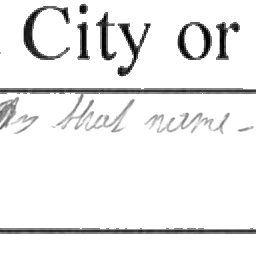 City or
that name-